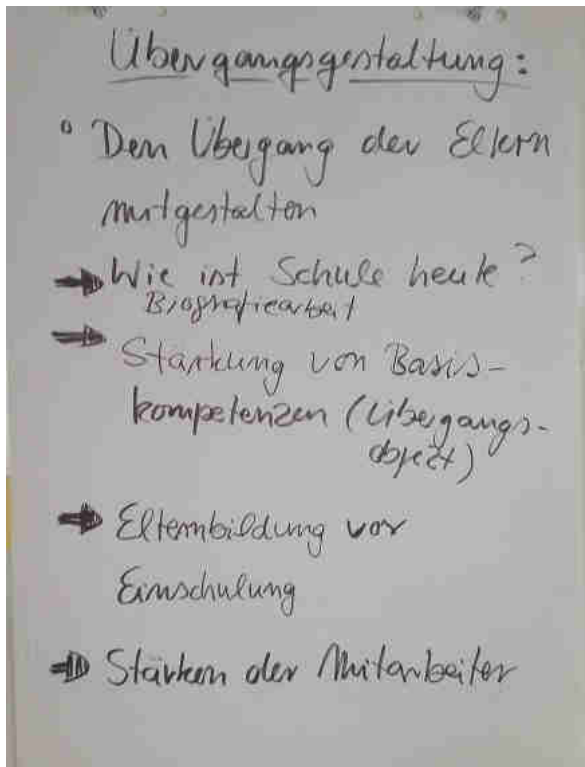 Übergangsgestaltung:
° Den Übergang der Eltern
mitgestalten
→ Wie ist Schule heute?
Biografiearbeit
→ Stärkung von Basis-
kompetenzen (Übergangs-
object)
→ Elternbildung vor
Einschulung
→ Stärken der Mitarbeiter